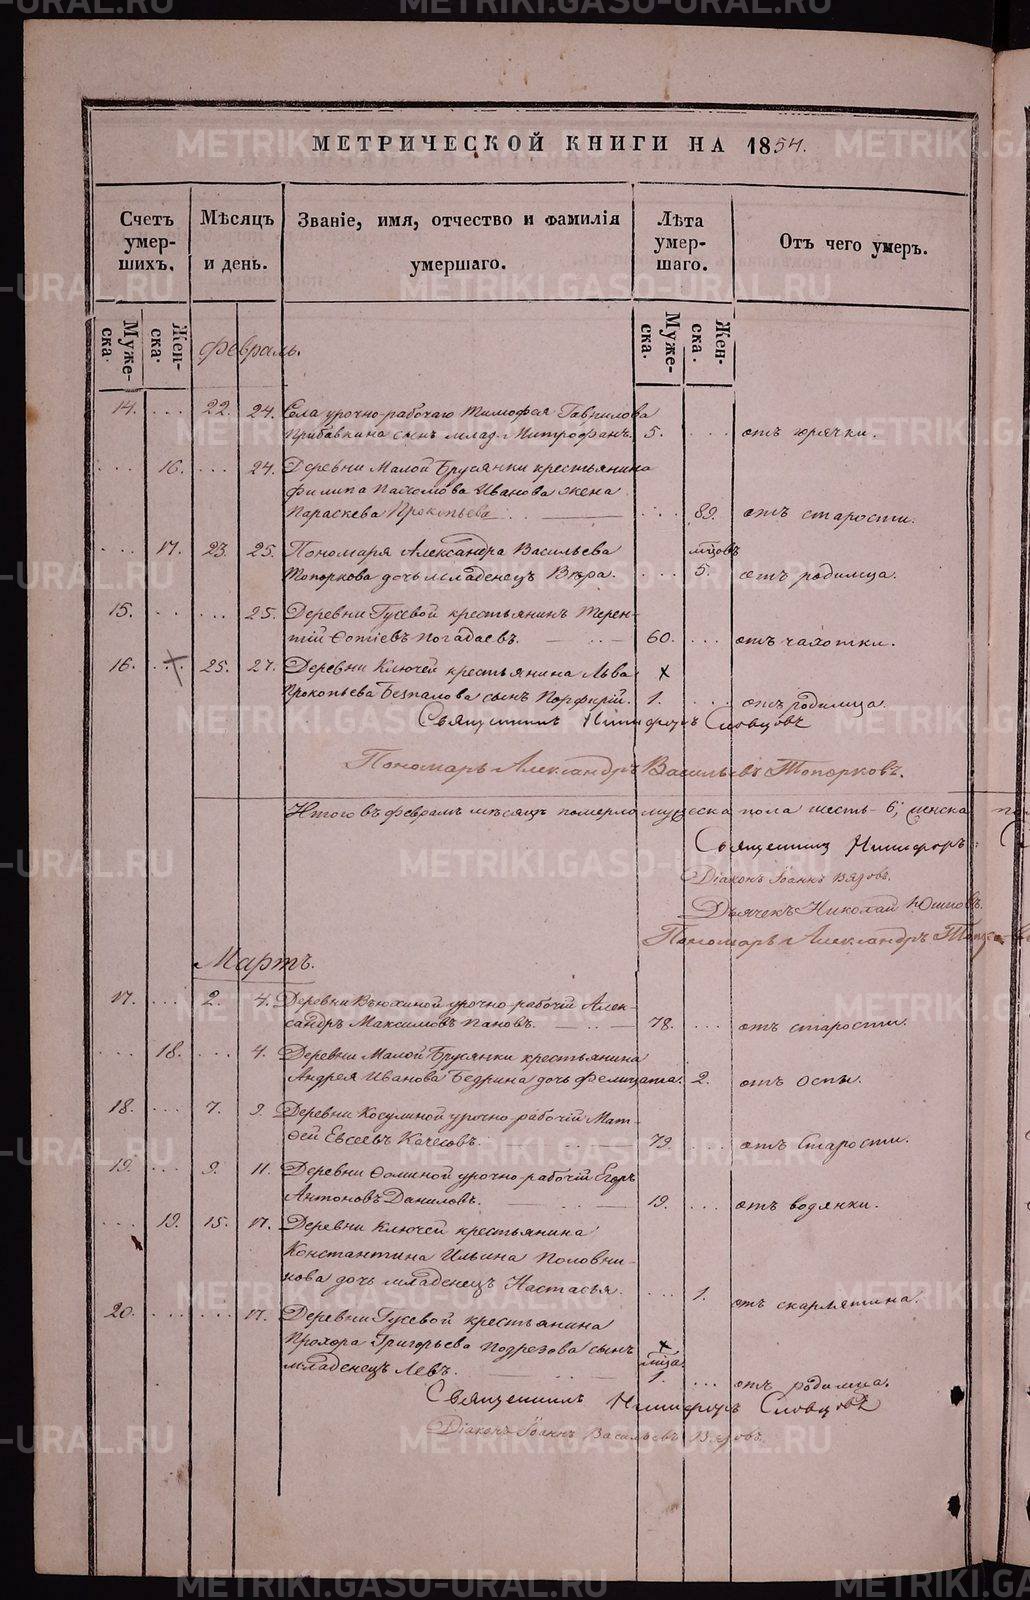 МЕТРИЧЕСКОЙ КНИГИ НА 1854.
Счетъ умер-шихъ. Мѣсяцъ и день. Званіе, имя, отчество и фамилія умершаго. Лѣта умер-шаго. Отъ чего умеръ.
Муже-ска. Жен-ска. Муже-ска. Жен-ска.
Февраль.
14. ... 22. 24. Села урочно-рабочаго Тимофея Гаврилова
Прибавкина сынъ млад. Митрофанъ. 5. ... отъ горячки.
... 16. ... 24. Деревни Малой Брусянки крестьянина
Филипа Пахомова Иванова жена
Параскева Прокопьева ... 89. отъ старости.
... 17. 23. 25. Пономаря Александра Васильева мцовъ
Топоркова дочь младенецъ Вѣра. ... 5. отъ родимца.
15. ... ... 25. Деревни Гусевой крестьянинъ Терен-
тій Ѳотіевъ Погадаевъ. 60. ... отъ чахотки.
16. ... 25. 27. Деревни Ключей крестьянина Льва
Прокопьева Безпалова сынъ Порфирій. 1. ... отъ родимца.
Священникъ Никифоръ Словцовъ
Пономарь Александръ Васильевъ Топорковъ.
Итого въ февралѣ мѣсяцѣ померло мужеска пола шесть 6, женска
Священникъ Никифоръ
Діаконъ Іоаннъ Вязовъ.
Дьячекъ Николай Юшковъ.
Пономарь Александръ
Мартъ.
17. ... 2. 4. Деревни Вьюхиной урочно-рабочій Алек-
сандръ Максимовъ Пановъ. 78. ... отъ старости.
... 18. ... 4. Деревни Малой Брусянки крестьянина
Андрея Иванова Бедрина дочь Фелицата. 2. отъ оспы.
18. ... 7. 9. Деревни Косулиной урочно-рабочій Мат-
ѳей Евсеевъ 79. ... отъ старости.
19. ... 9. 11. Деревни Ѳоминой урочно-рабочій Егоръ
Антоновъ Даниловъ. 19. ... отъ водянки.
... 19. 15. 17. Деревни Ключей крестьянина
Константина Ильина Половни-
кова дочь младенецъ Настасья. ... 1. отъ скарлятина.
20. ... ... 17. Деревни Гусевой крестьянина
Прохора Григорьева Подрезова сынъ мца.
младенецъ Левъ. 1. ... отъ родимца.
Священникъ Никифоръ Словцовъ
Діаконъ Іоаннъ Васильевъ Вязовъ.
METRIKI.GASO-URAL.RU